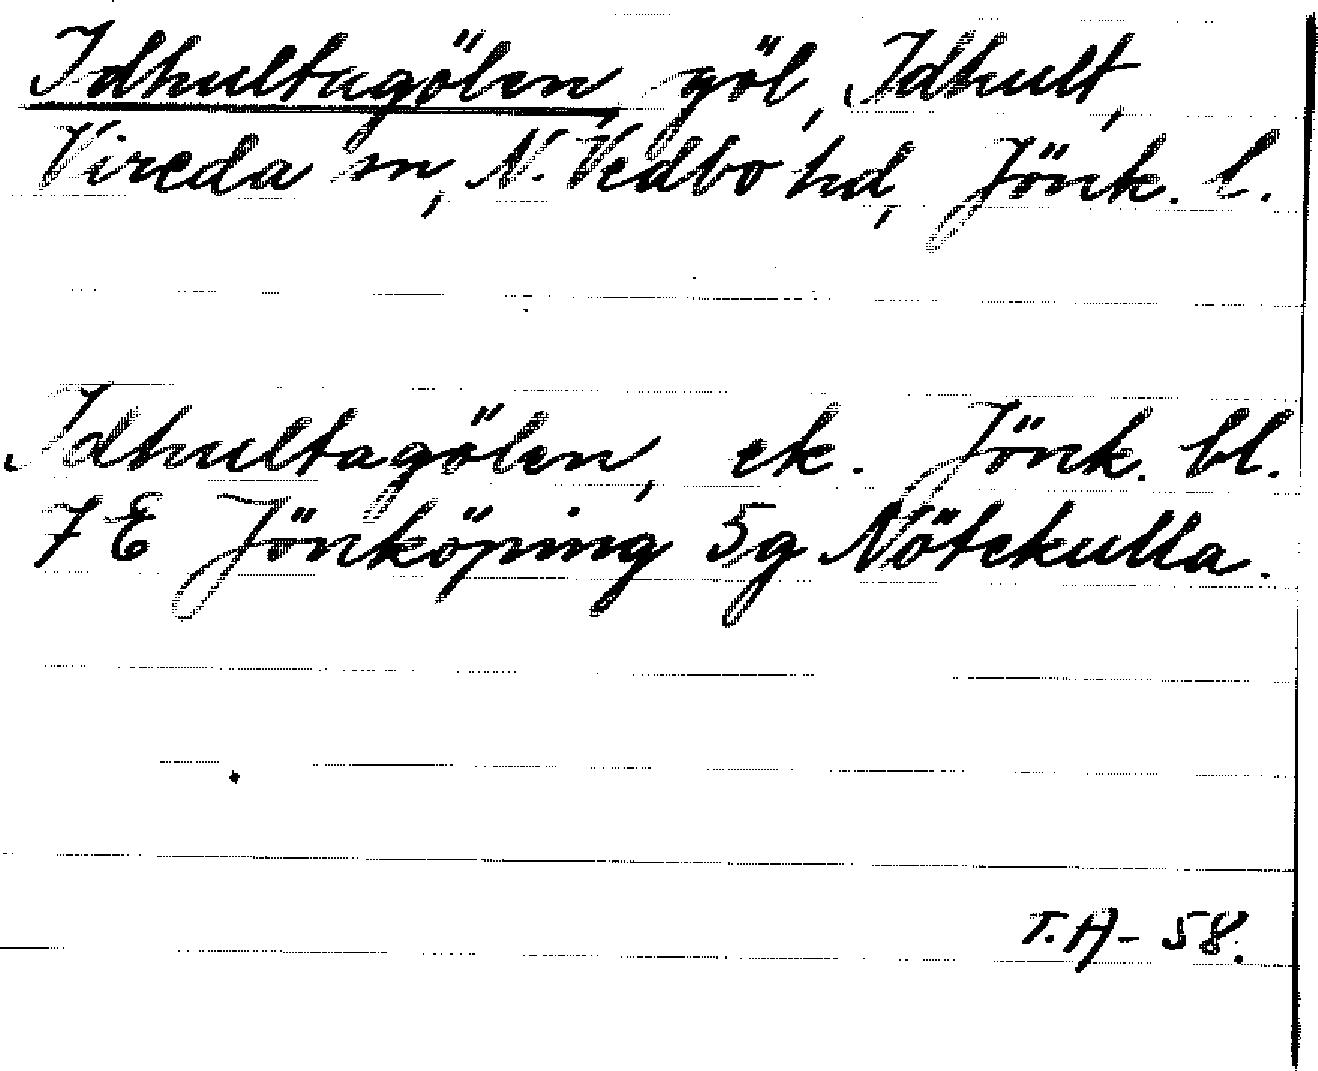 Idhultagölen, göl, Idhult,
Vireda sn, N. Vedbo hd, Jönk. l.
Idhultagölen, ek. Jönk. bl.
7 E Jönköping 5g Nötekulla.
T.A - 58.